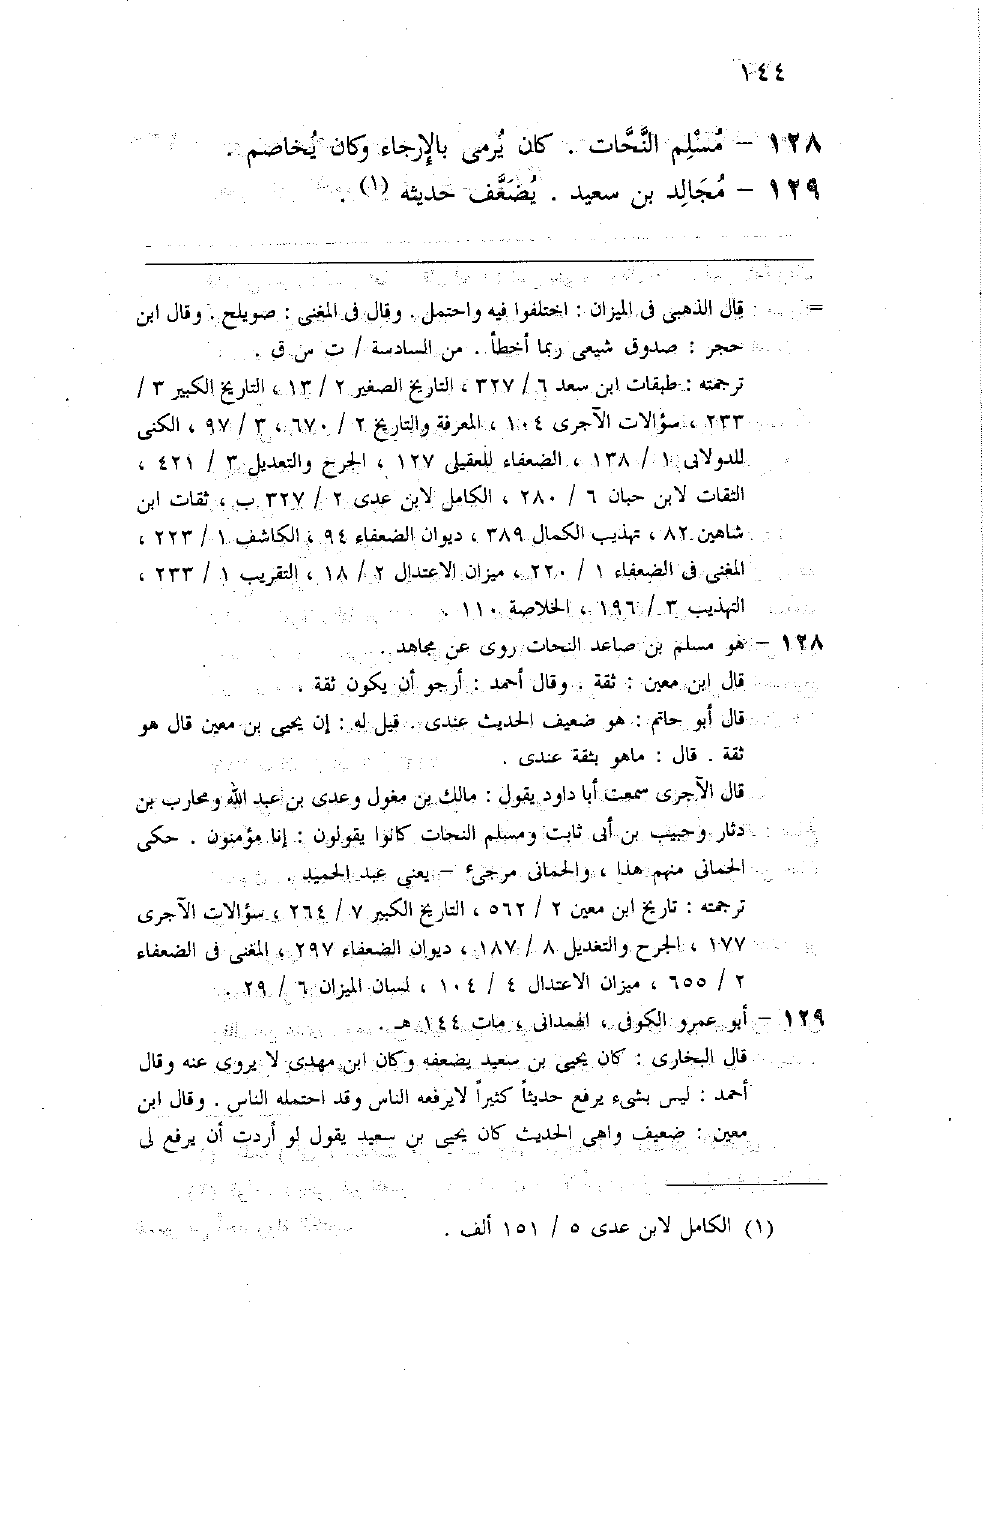 ١٤٤
١٢٨ – مُسْلِم النَّحَّات . كان يُرمى بالإرجاء وكان يُخاصم .
١٢٩ – مُجَالِد بن سعيد . يُضَعَّف حديثه (١) .
= قال الذهبى فى الميزان : اختلفوا فيه واحتمل . وقال فى المغنى : صويلح . وقال ابن
حجر : صدوق شيعى ربما أخطأ . من السادسة / ت س ق .
ترجمته : طبقات ابن سعد ٦ / ٣٢٧ ، التاريخ الصغير ٢ / ١٣ ، التاريخ الكبير ٣ /
٢٣٣ ، سؤالات الآجرى ١٠٤ ، المعرفة والتاريخ ٢ / ٦٧٠ ، ٣ / ٩٧ ، الكنى
للدولابى ١ / ١٣٨ ، الضعفاء للعقيلى ١٢٧ ، الجرح والتعديل ٣ / ٤٢١ ،
الثقات لابن حبان ٦ / ٢٨٠ ، الكامل لابن عدى ٢ / ٣٢٧ ب ، ثقات ابن
شاهين ٨٢ ، تهذيب الكمال ٣٨٩ ، ديوان الضعفاء ٩٤ ، الكاشف ١ / ٢٢٣ ،
المغنى فى الضعفاء ١ / ٢٢٠ ، ميزان الاعتدال ٢ / ١٨ ، التقريب ١ / ٢٣٣ ،
التهذيب ٣ / ١٩٦ ، الخلاصة ١١٠ .
١٢٨ – هو مسلم بن صاعد النحات روى عن مجاهد .
قال ابن معين : ثقة . وقال أحمد : أرجو أن يكون ثقة .
قال أبو حاتم : هو ضعيف الحديث عندى . قيل له : إن يحيى بن معين قال هو
ثقة . قال : ماهو بثقة عندى .
قال الآجرى سمعت أبا داود يقول : مالك بن مغول وعدى بن عبد الله ومحارب بن
دثار وحبيب بن أبى ثابت ومسلم النحات كانوا يقولون : إنا مؤمنون . حكى
الحمانى منهم هذا ، والحمانى مرجىء – يعنى عبد الحميد .
ترجمته : تاريخ ابن معين ٢ / ٥٦٢ ، التاريخ الكبير ٧ / ٢٦٤ ، سؤالات الآجرى
١٧٧ ، الجرح والتعديل ٨ / ١٨٧ ، ديوان الضعفاء ٢٩٧ ، المغنى فى الضعفاء
٢ / ٦٥٥ ، ميزان الاعتدال ٤ / ١٠٤ ، لسان الميزان ٦ / ٢٩ .
١٢٩ – أبو عمرو الكوفى ، الهمدانى ، مات ١٤٤ هـ .
قال البخارى : كان يحيى بن سعيد يضعفه وكان ابن مهدى لا يروى عنه وقال
أحمد : ليس بشىء يرفع حديثاً كثيراً لايرفعه الناس وقد احتمله الناس . وقال ابن
معين : ضعيف واهى الحديث كان يحيى بن سعيد يقول لو أردت أن يرفع لى
(١) الكامل لابن عدى ٥ / ١٥١ ألف .